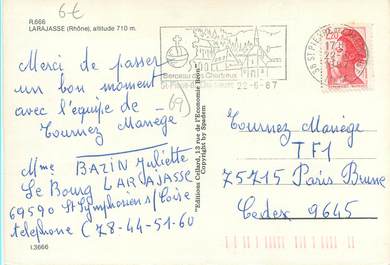 6€
R.666
LARAJASSE (Rhône), altitude 710 m.
Merci de passer
un bon moment
avec l'équipe de
Tournez Manège
69
Mme BAZIN Juliette
Le Bourg LARAJASSE
69590 St Symphorien s/Coise
telephone (78-44-51-60
I.3666
"Editions Cellard, 13 rue de l'Economie Bron"
Copyright by Spadem
Berceau des Chartreux
22-6-87
38 ST PIERRE
17H
22-6
2,20
Tournez Manège
TF1
75715 Paris Brune
Cedex 9645